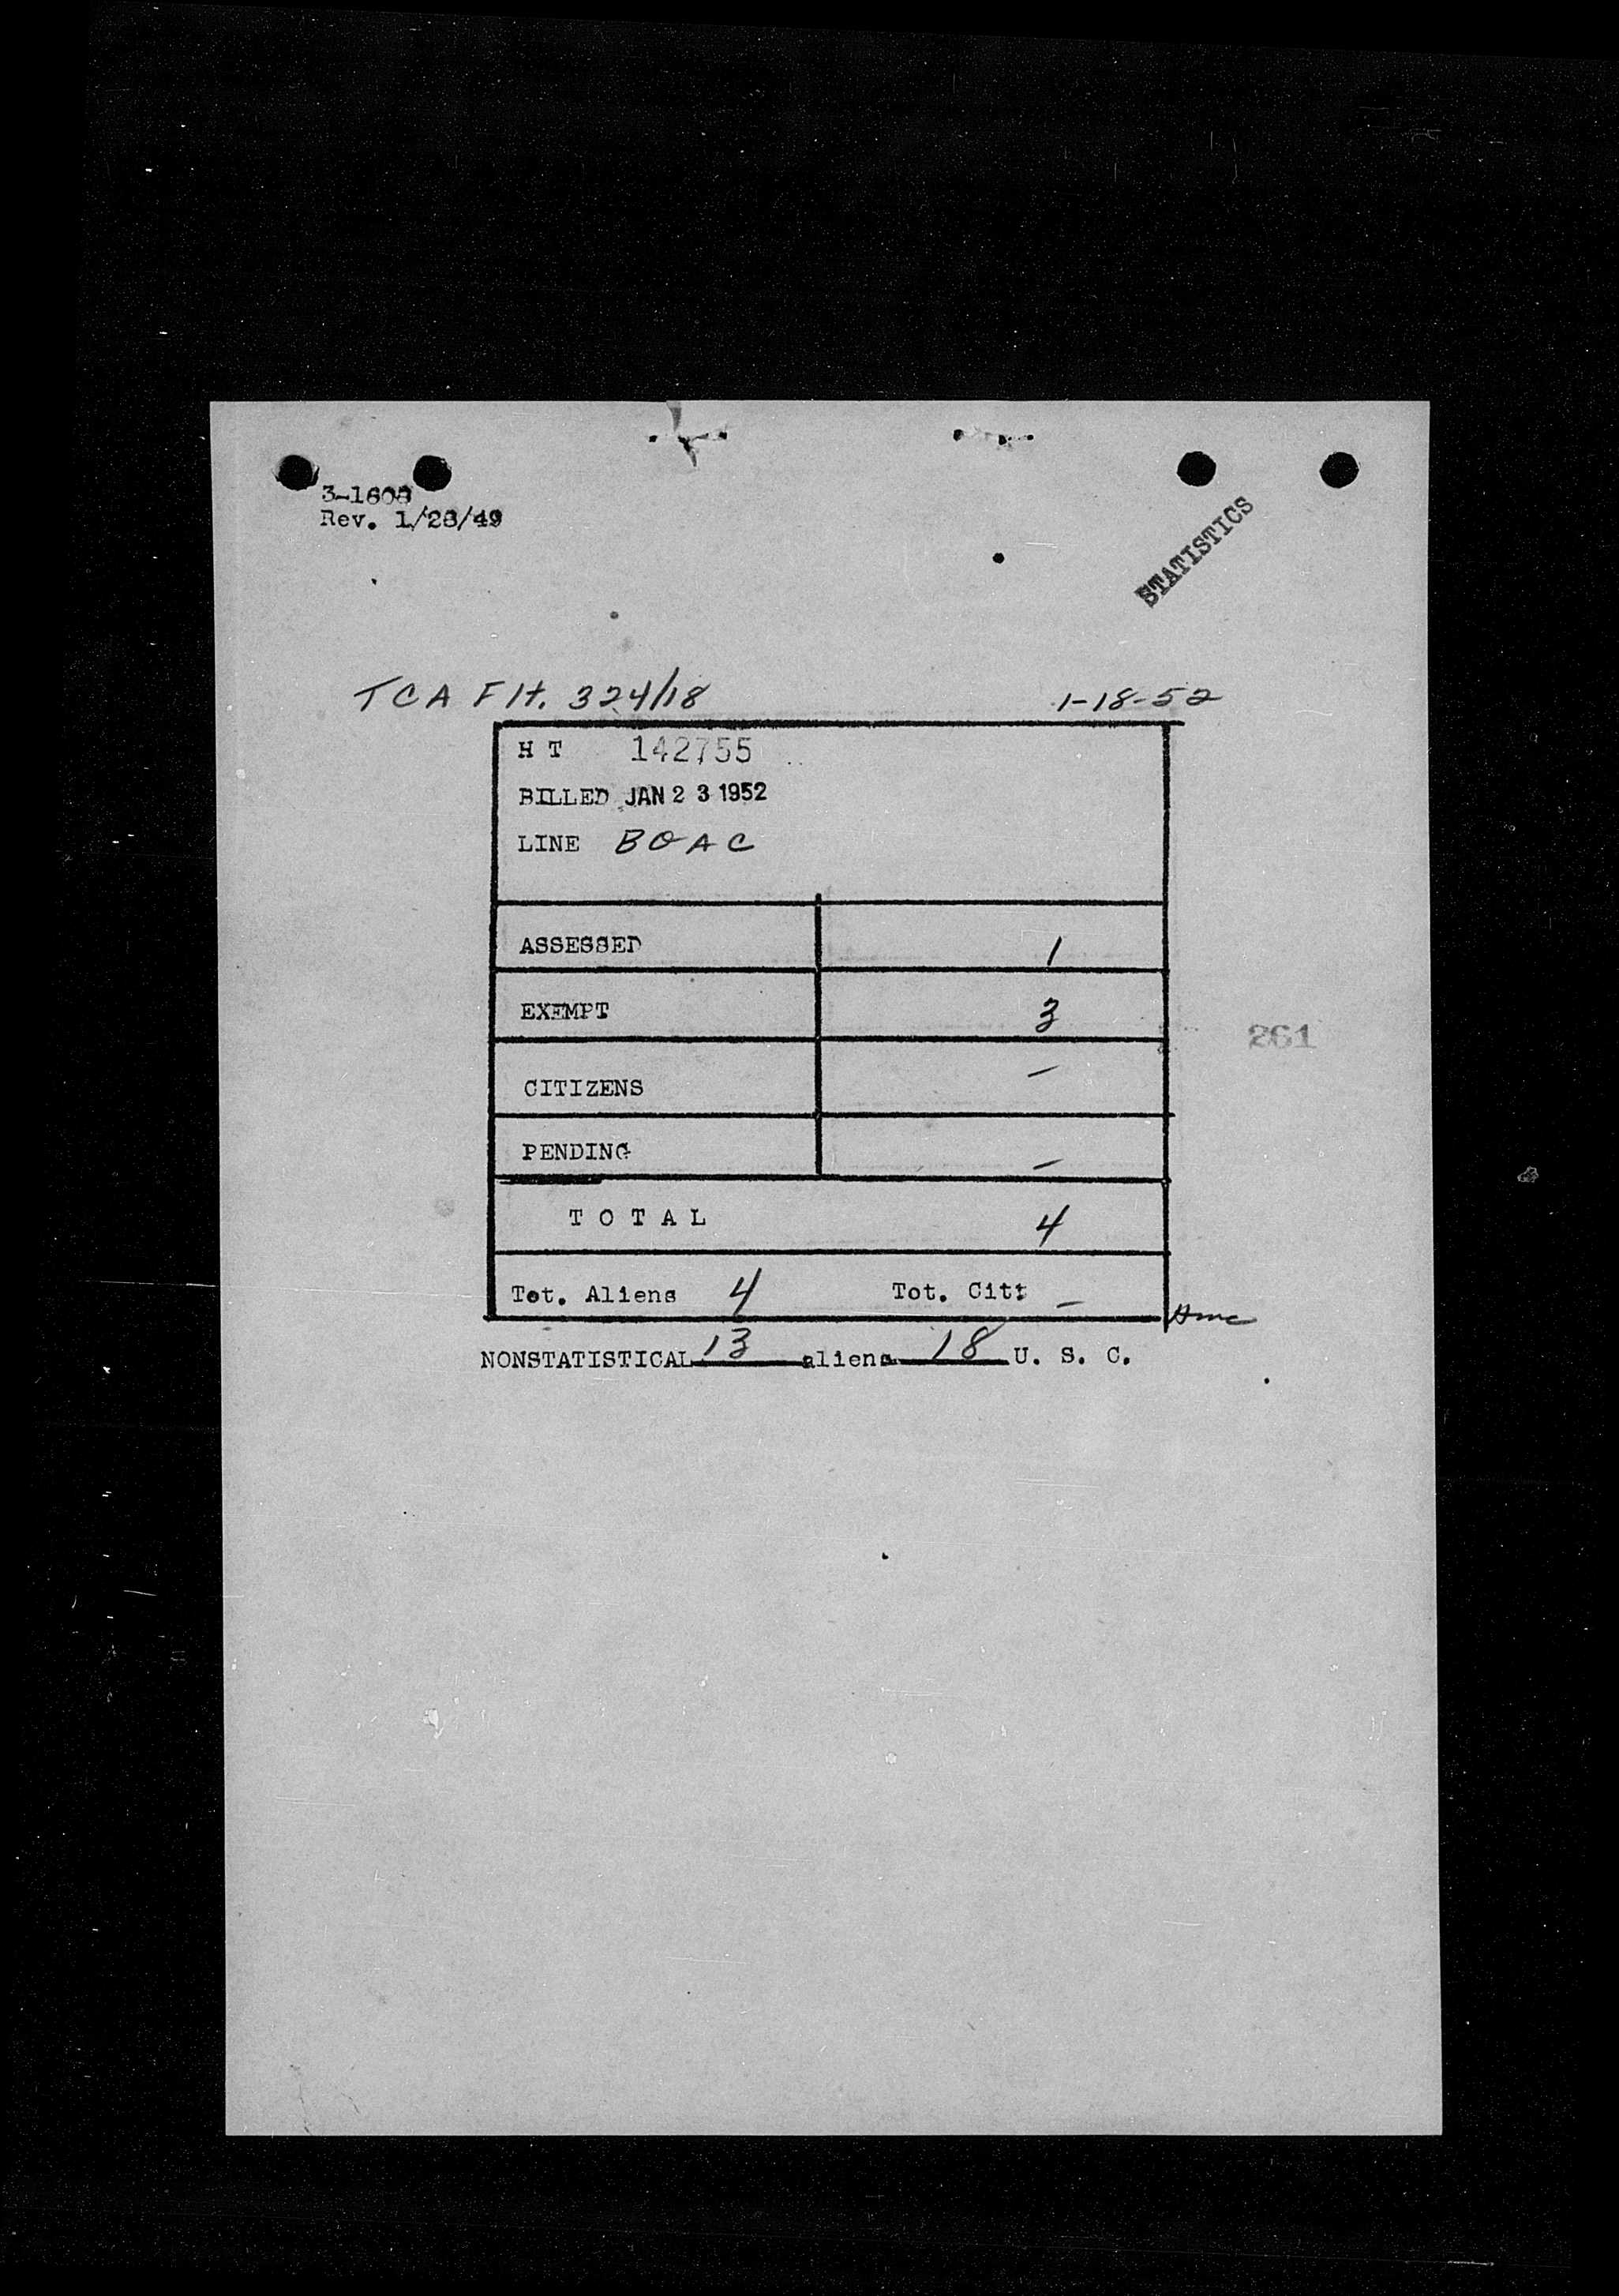 3-1608
Rev. 1/28/49
STATISTICS
TCA Flt. 324/18 1-18-52
H T 142755
BILLED JAN 23 1952
LINE BOAC
ASSESSED 1
EXEMPT 3
261
CITIZENS –
PENDING –
T O T A L 4
Tot. Aliens 4 Tot. Citz –
NONSTATISTICAL 13 aliens 18 U. S. C.